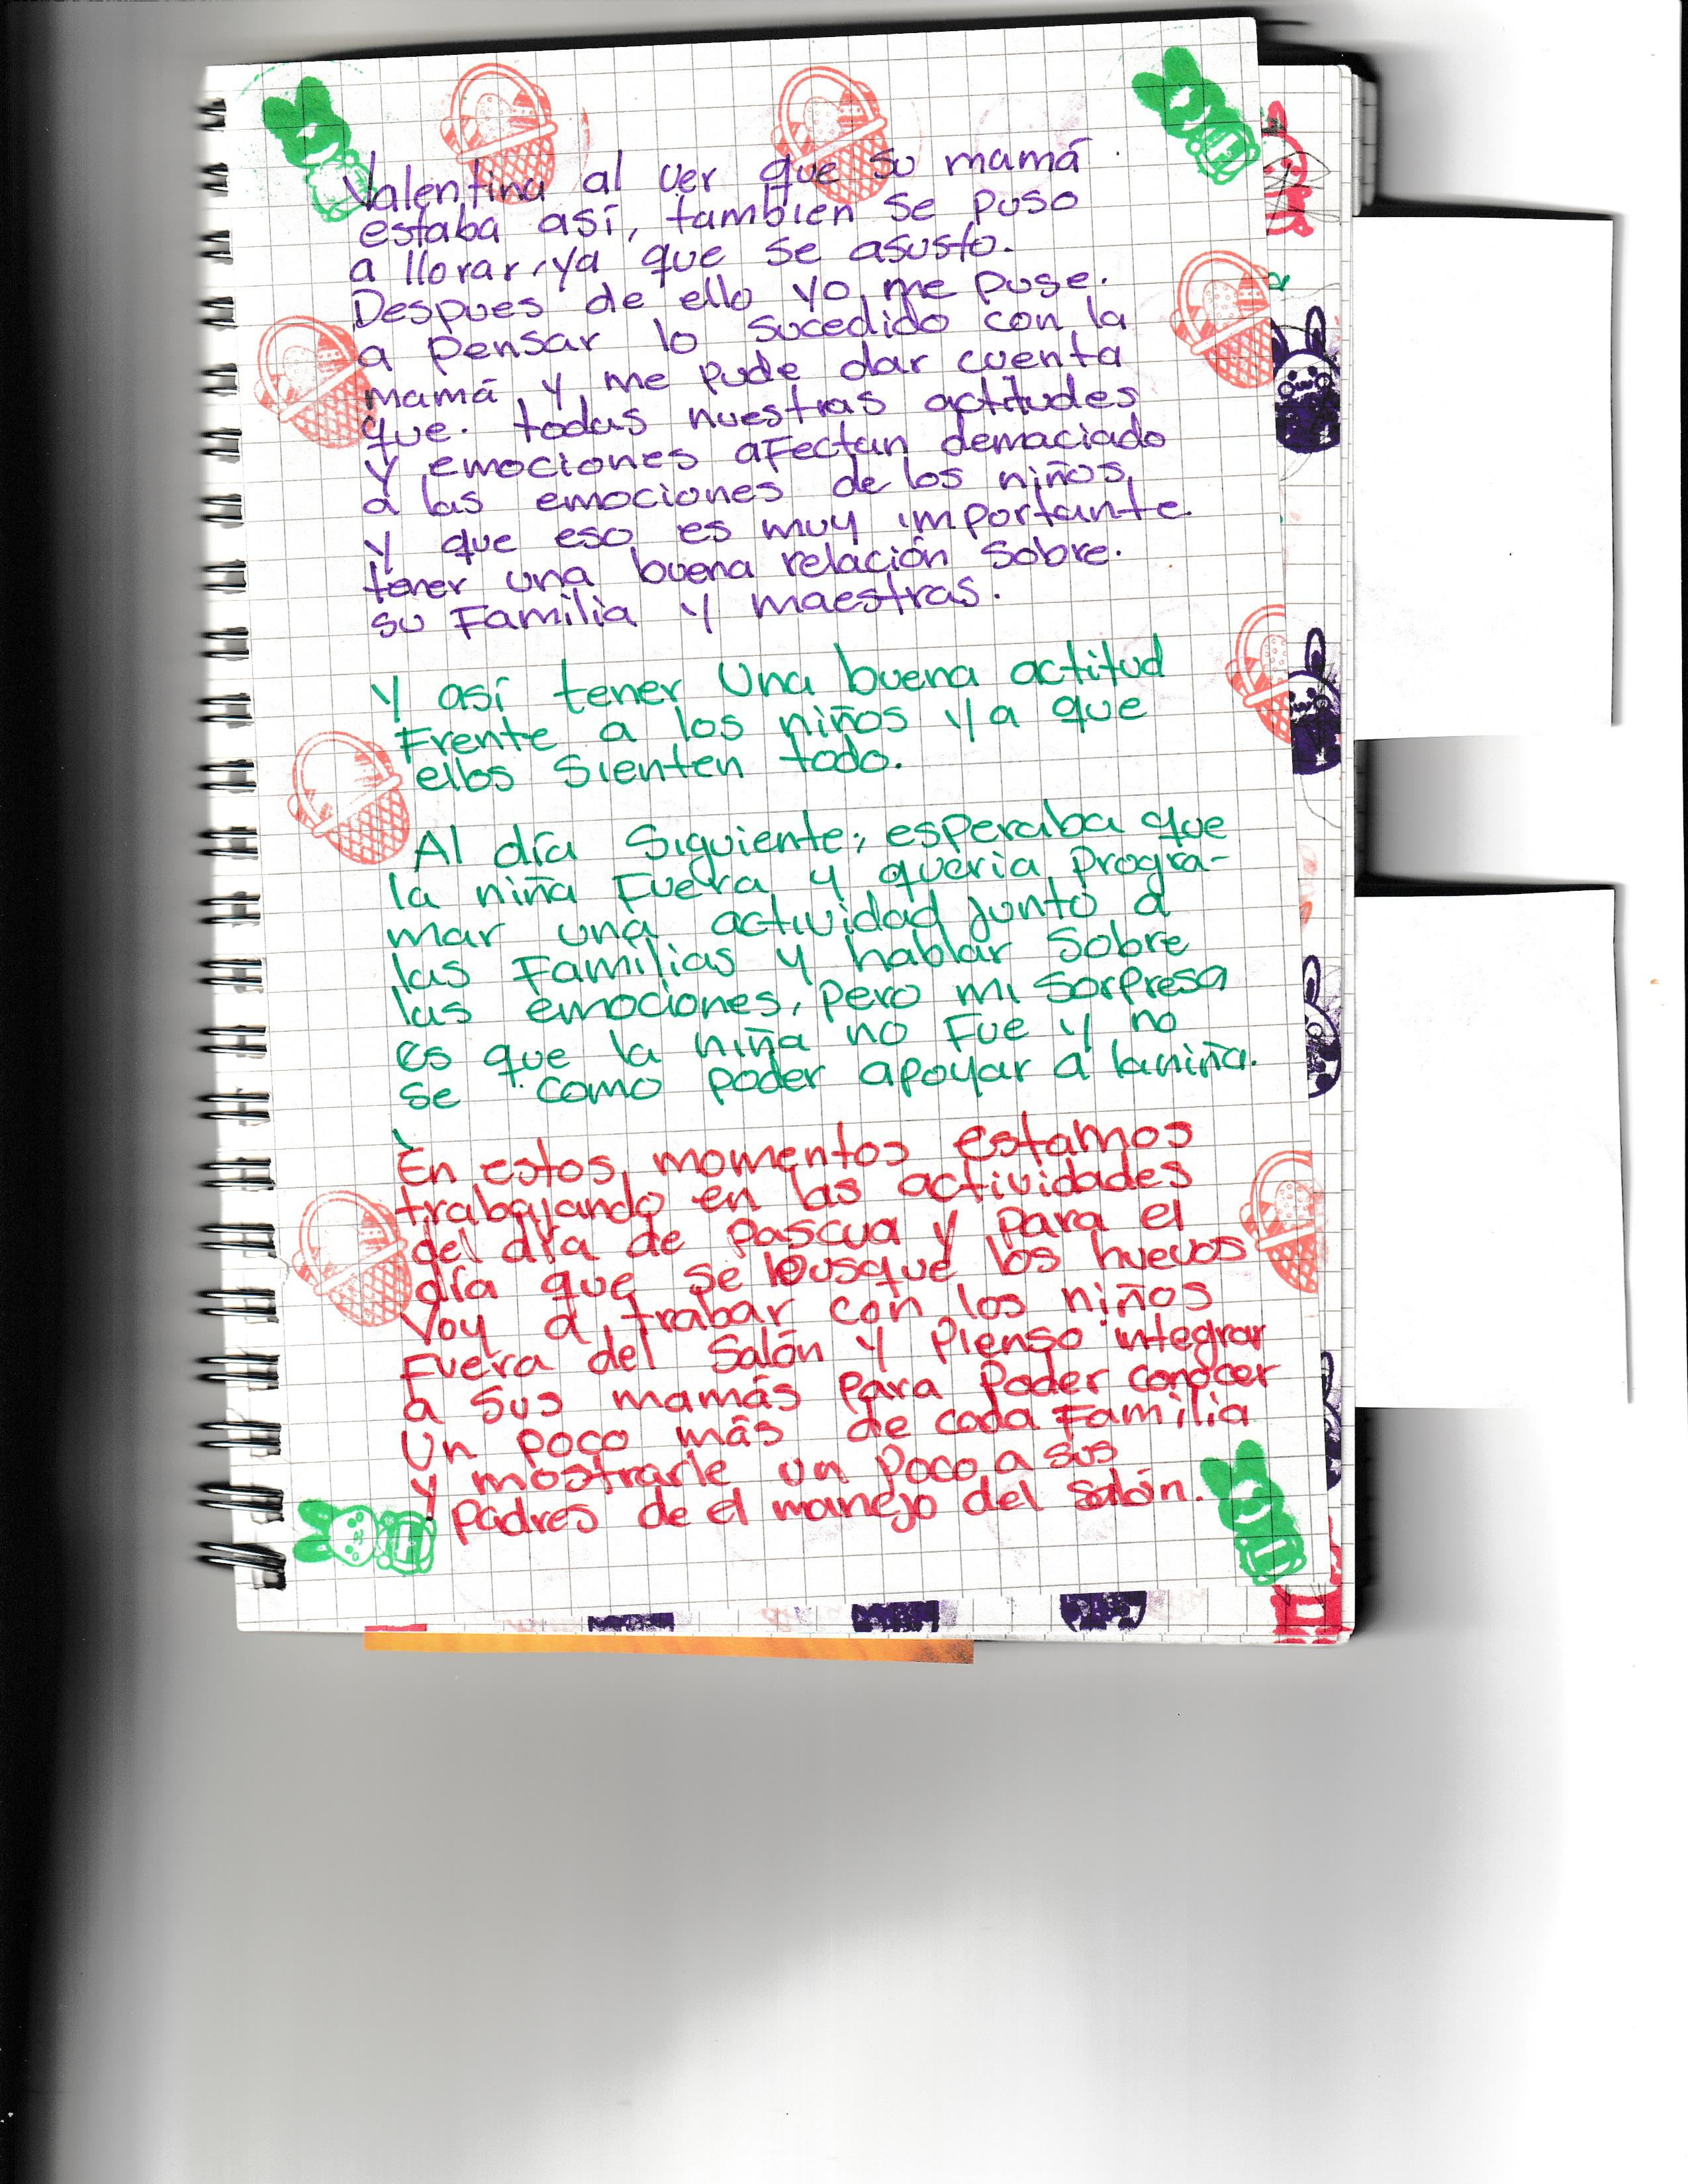 Valentina al ver que su mamá
estaba así, tambien se puso
a llorar, ya que se asusto.
Despues de ello yo me puse.
a pensar lo sucedido con la
mamá y me pude dar cuenta
que. todas nuestras actitudes
y emociones afectan demaciado
a las emociones de los niños,
y que eso es muy importante.
tener una buena relación sobre.
su Familia y maestras.
Y así tener una buena actitud
Frente a los niños ya que
ellos sienten todo.
Al día siguiente, esperaba que
la niña Fuera y queria progra-
mar una actividad junto a
las Familias y hablar sobre
las emociones, pero mi sorpresa
es que la niña no Fue y no
se como poder apoyar a la niña.
En estos momentos estamos
trabajando en las actividades
del día de pascua y para el
día que se busque los huevos
voy a trabar con los niños
Fuera del salón y pienso integrar
a sus mamás para poder conocer
un poco más de cada Familia
y mostrarle un poco a sus
padres de el manejo del salón.